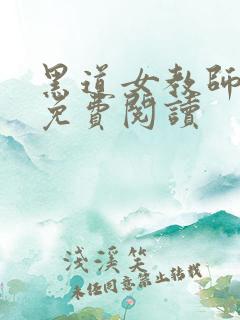 黑道女教師
免費閱讀
淺溪笑
未经同意禁止转载